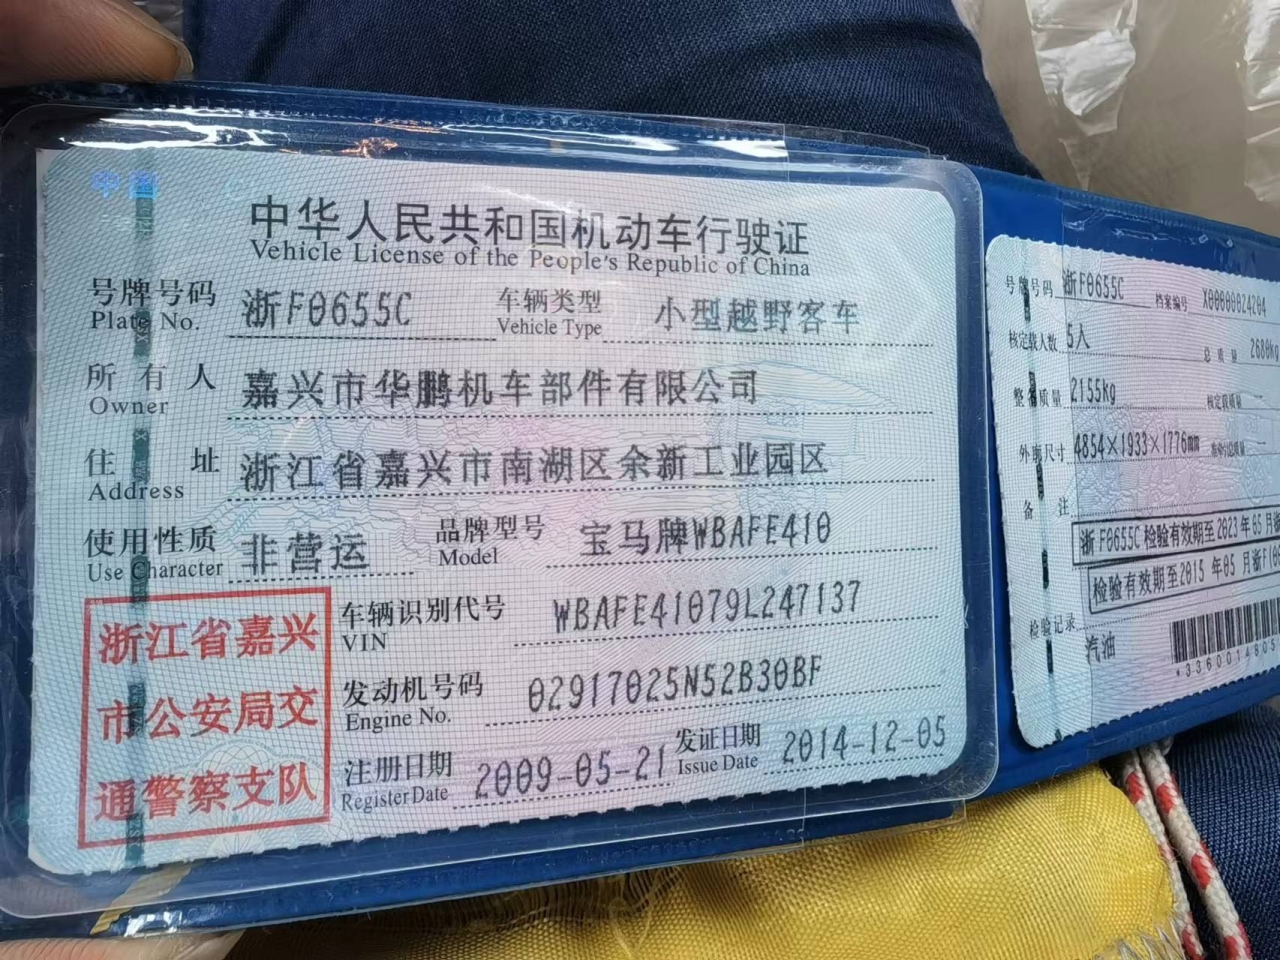 中国
中华人民共和国机动车行驶证
Vehicle License of the People's Republic of China
号牌号码 浙F0655C 车辆类型 小型越野客车
Plate No. Vehicle Type
所有人 嘉兴市华鹏机车部件有限公司
Owner
住址 浙江省嘉兴市南湖区余新工业园区
Address
使用性质 非营运 品牌型号 宝马牌WBAFE410
Use Character Model
浙江省嘉兴
市公安局交
通警察支队
车辆识别代号 WBAFE41079L247137
VIN
发动机号码 02917025N52B30BF
Engine No.
注册日期 2009-05-21 发证日期 2014-12-05
Register Date Issue Date
号牌号码 浙F0655C 档案编号 X00000824204
核定载人数 5人 总质量 2680kg
整备质量 2155kg 核定载质量 --
外廓尺寸 4854×1933×1776mm
备注
浙F0655C 检验有效期至2023年05月
检验有效期至2015年05月浙F(0
检验记录
汽油
*336001480